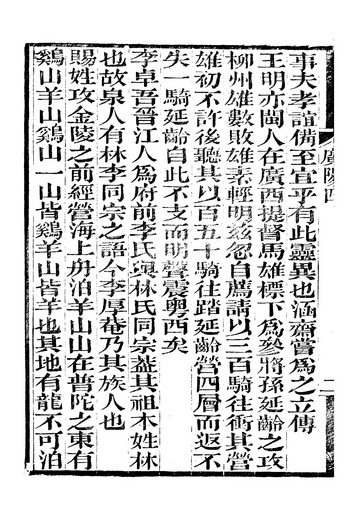 廣陽西
二
事夫孝誼備至宜乎有此靈異也涵齋嘗爲之立傳
王明亦閩人在廣西提督馬雄標下爲叅將孫延齡之攻
柳州雄數敗雄素輕明兹忽自薦請以三百騎往衝其營
雄初不許後聽其以百五十騎往踏延齡營四層而返不
失一騎延齡自此不支而明聲震粵西矣
李卓吾晉江人爲府前李氏與林氏同宗葢其祖木姓林
也故泉人有林李同宗之語今李厚菴乃其族人也
賜姓攻金陵之前經營海上舟泊羊山山在普陀之東有
鷄山羊山鷄山一山皆鷄羊山皆羊也其地有龍不可泊